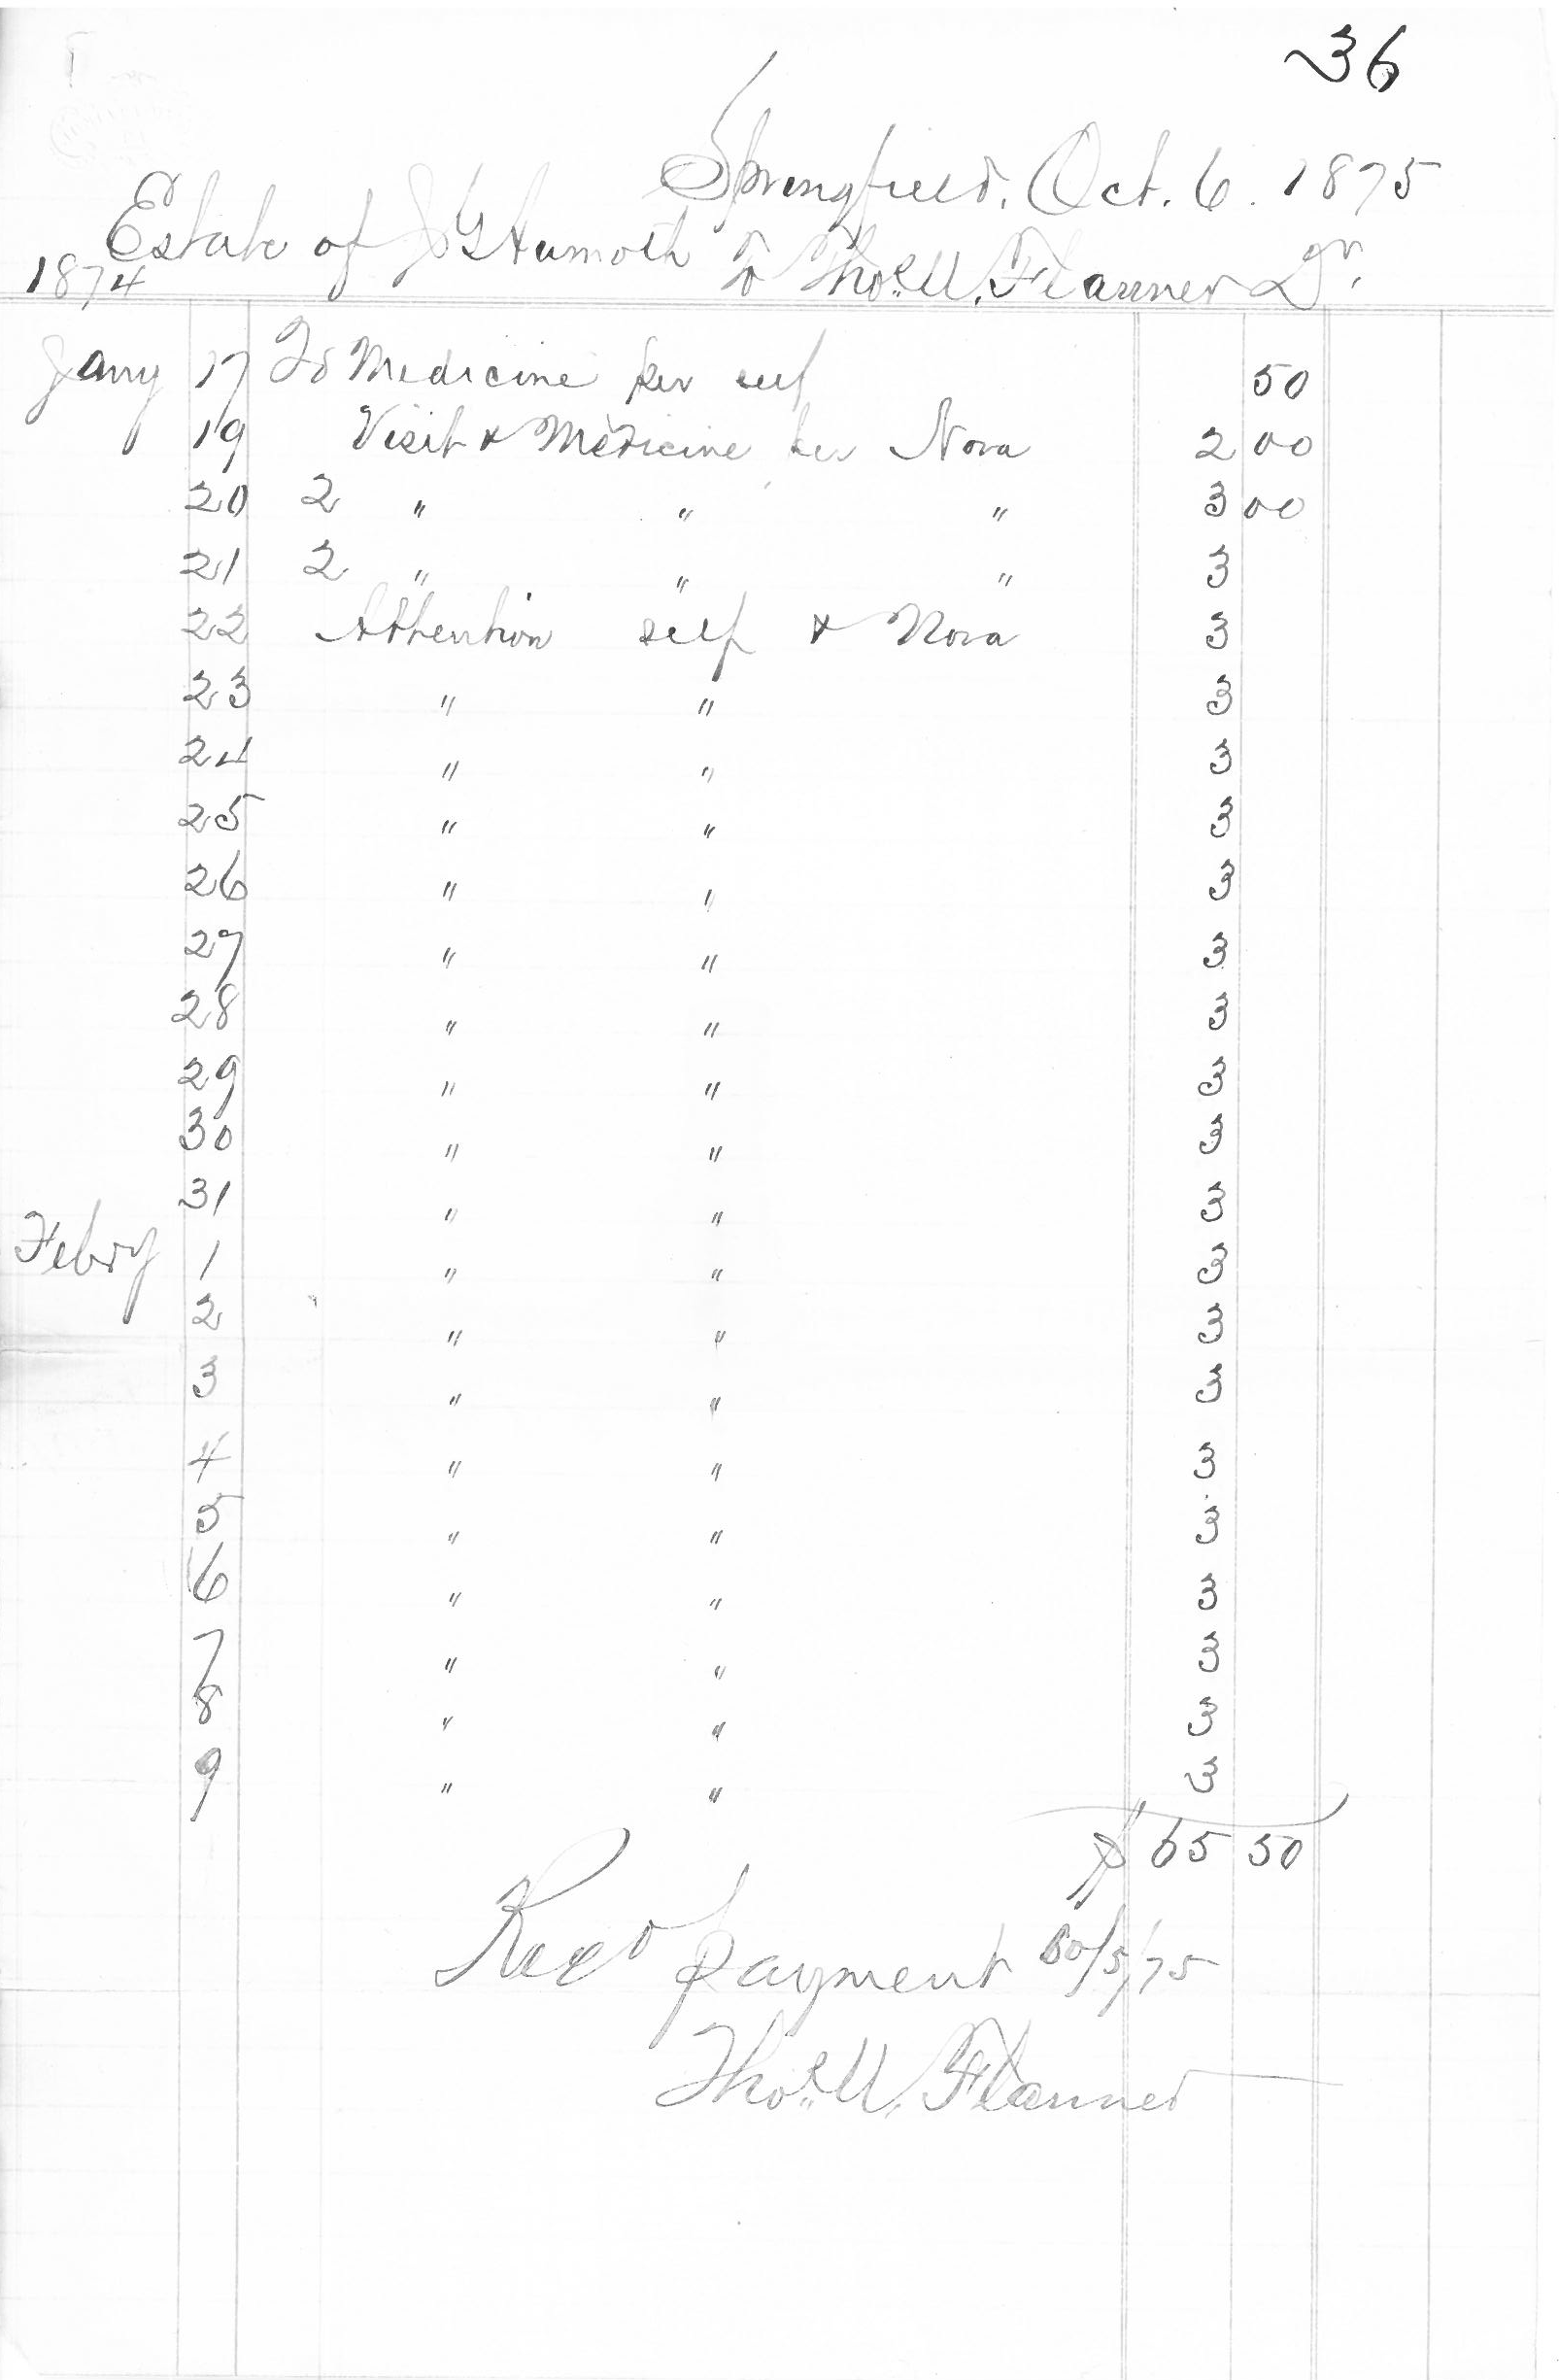 36
Springfield, Oct. 6. 1875
Estate of J G Hamoth To Thos. U. Flanner Dr.
1874
Jany 17 To Medicine per self 50
19 Visit & Medicine per Nora 2 00
20 2 " " " 3 00
21 2 " " " 3
22 Attention self & Nora 3
23 " " 3
24 " " 3
25 " " 3
26 " " 3
27 " " 3
28 " " 3
29 " " 3
30 " " 3
31 " " 3
Febry 1 " " 3
2 " " 3
3 " " 3
4 " " 3
5 " " 3
6 " " 3
7 " " 3
8 " " 3
9 " " 3
$ 65 50
Recd payment /5/75
Thos. U. Flanner